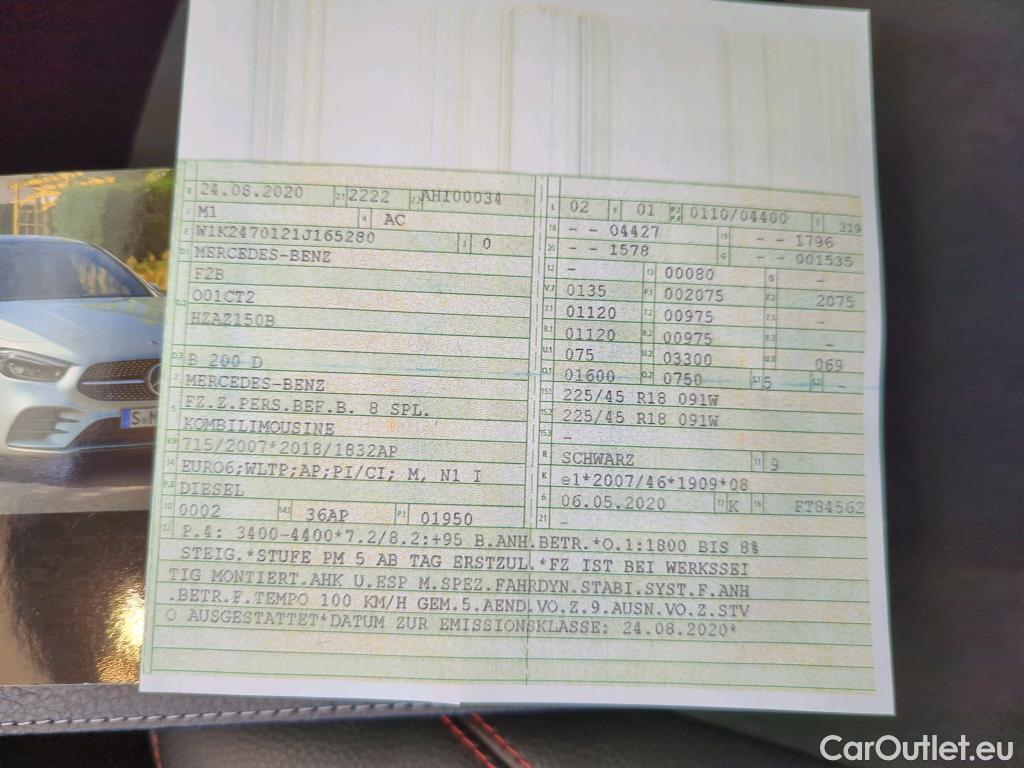 B 24.08.2020 2.1 2222 2.2 AHI00034
J M1 4 AC
E W1K2470121J165280 3 0
D.1 MERCEDES-BENZ
F2B
D.2 O01CT2
HZAZ150B
D.3 B 200 D
2 MERCEDES-BENZ
5 FZ.Z.PERS.BEF.B. 8 SPL.
KOMBILIMOUSINE
V.9 715/2007*2018/1832AP
14 EURO6;WLTP;AP;PI/CI; M, N1 I
P.3 DIESEL
10 0002 14.1 36AP P.1 01950
L 02 9 01 P.2 P.4 0110/04400 T 219
18 - - 04427 19 - - 1796
20 - - 1578 G - - 001535
12 - 13 00080 Q -
V.7 0135 F.1 002075 F.2 2075
7.1 01120 7.2 00975 7.3 -
8.1 01120 8.2 00975 8.3 -
U.1 075 U.2 03300 U.3 069
O.1 01600 O.2 0750 S.1 5 S.2 -
15.1 225/45 R18 091W
15.2 225/45 R18 091W
15.3 -
R SCHWARZ 11 9
K e1*2007/46*1909*08
6 06.05.2020 17 K 16 FT84562
21 -
22 P.4: 3400-4400*7.2/8.2:+95 B.ANH.BETR.*O.1:1800 BIS 8%
STEIG.*STUFE PM 5 AB TAG ERSTZUL.*FZ IST BEI WERKSSEI
TIG MONTIERT.AHK U.ESP M.SPEZ.FAHRDYN.STABI.SYST.F.ANH
.BETR.F.TEMPO 100 KM/H GEM.5.AEND.VO.Z.9.AUSN.VO.Z.STV
O AUSGESTATTET*DATUM ZUR EMISSIONSKLASSE: 24.08.2020*
CarOutlet.eu